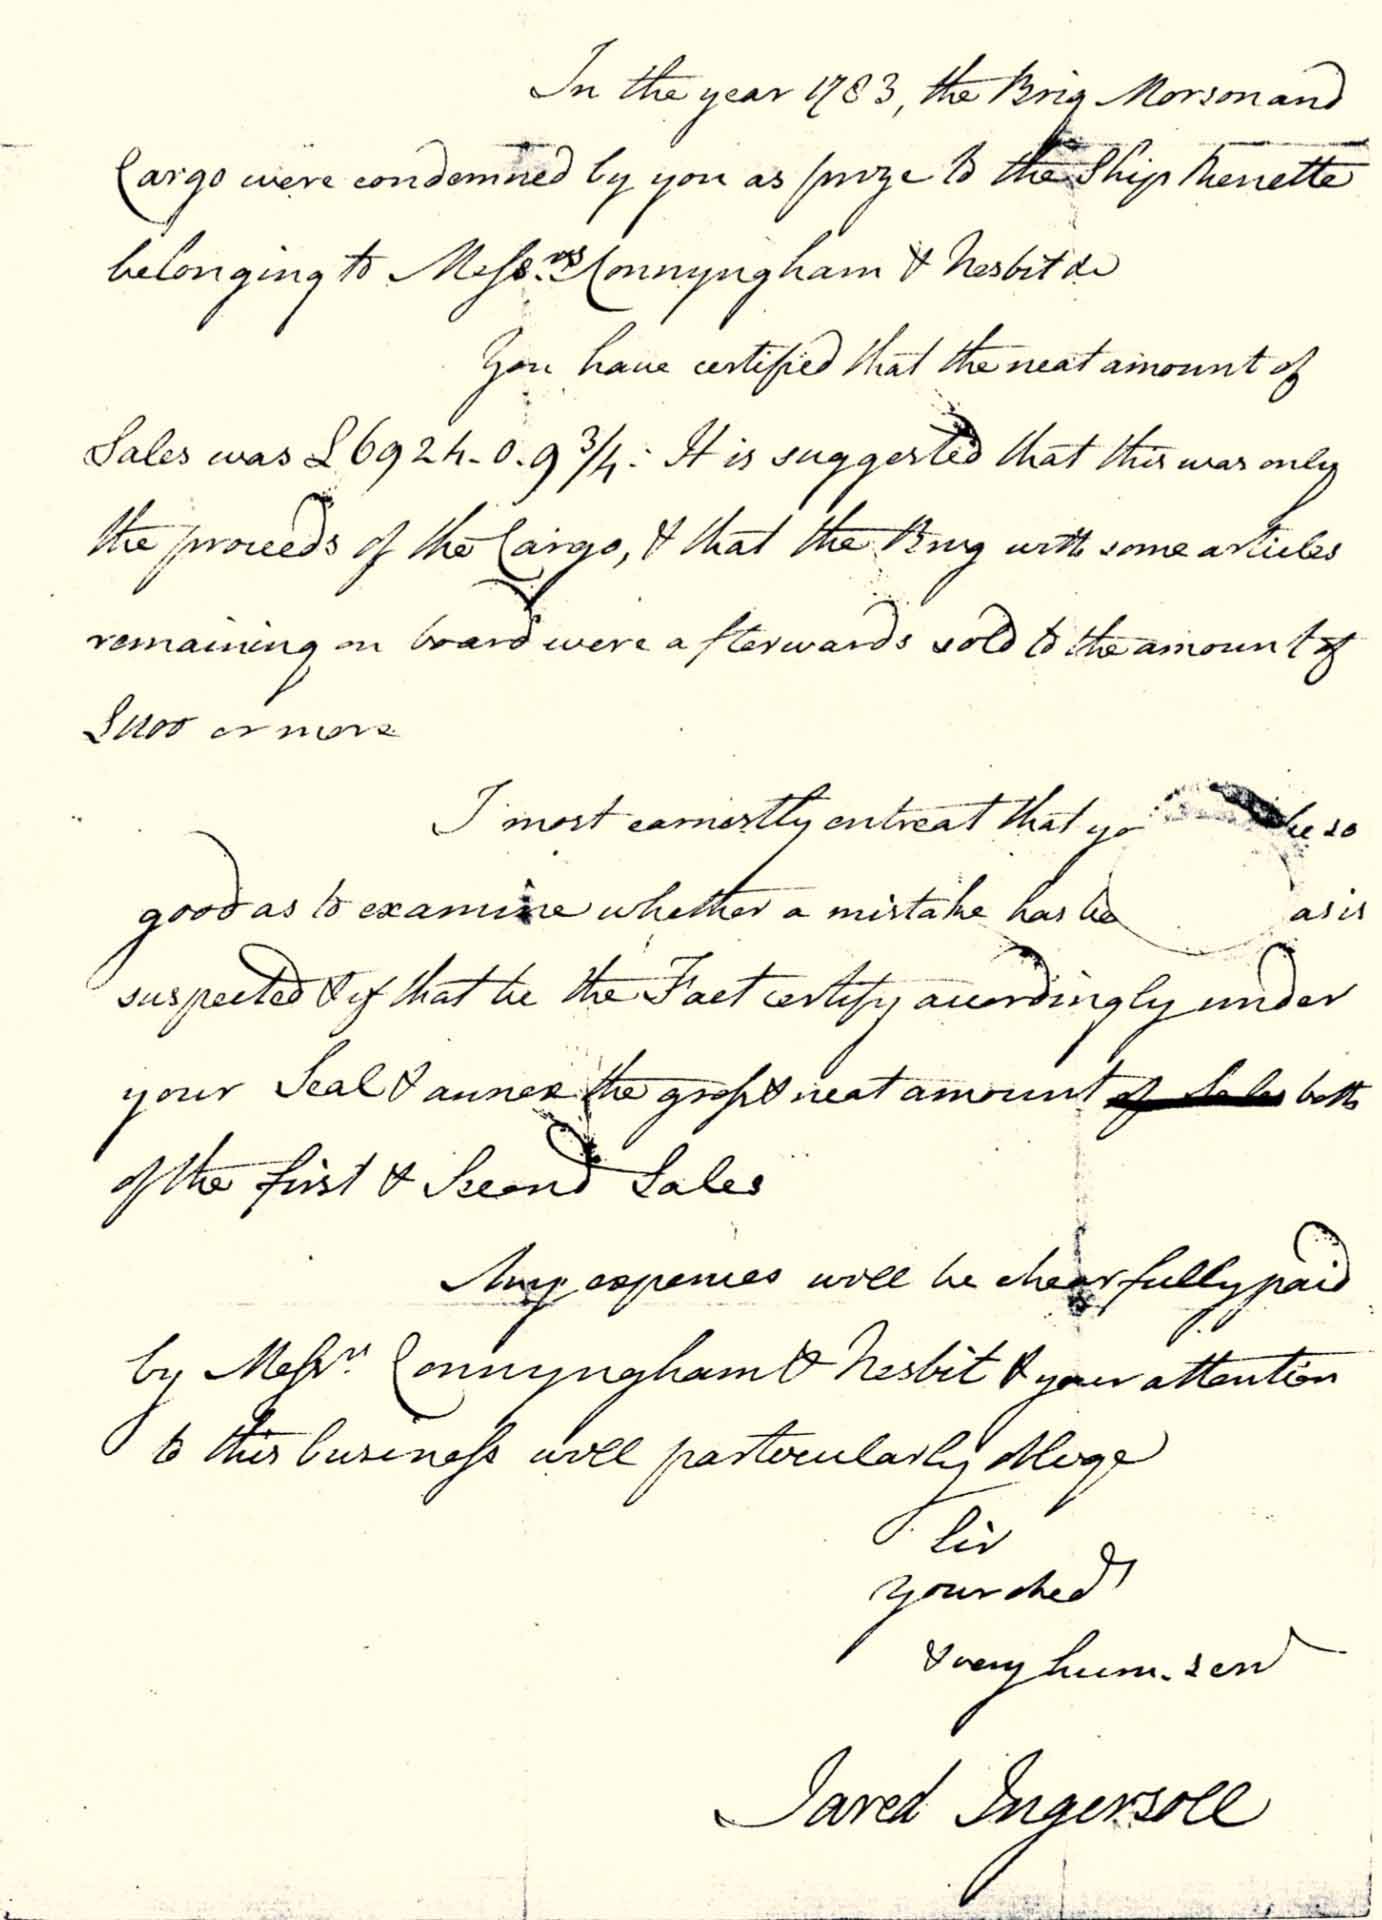 In the year 1783, the Brig Morson and
Cargo were condemned by you as prize to the Ship Renette
belonging to Mess.rs Connyngham & Nesbit &c
You have certified that the neat amount of
Sales was £6924-0-9 3/4: It is suggested that this was only
the proceeds of the Cargo, & that the Brig with some articles
remaining on board were afterwards sold to the amount of
£1100 or more
I most earnestly entreat that yo be so
good as to examine whether a mistake has be as is
suspected & if that be the Fact certify accordingly under
your Seal & annex the gross & neat amount of Sales both
of the first & Second Sales
Any expences will be chearfully paid
by Messrs. Connyngham & Nesbit & your attention
to this business will particularly oblige
Sir
your obed
& very hum. serv
Jared Ingersoll